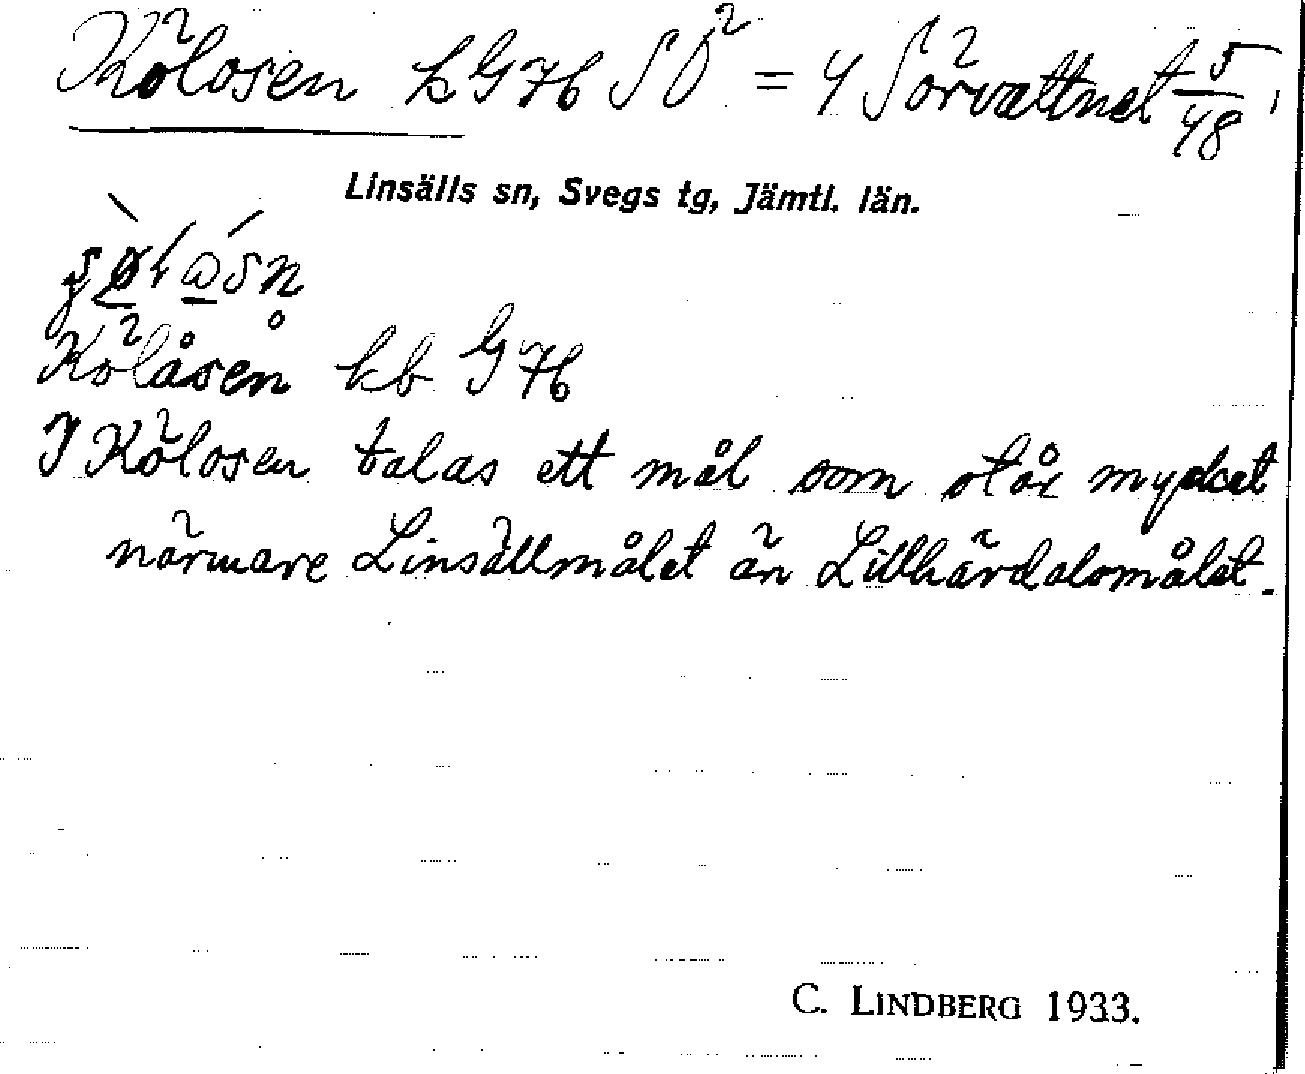 Kölosen kG76 SO = 4 Sörvattnet 5/48
Linsälls sn, Svegs tg, Jämtl. län.
Kölåsen kb G76
I Kölosen talas ett mål som står mycket
närmare Linsällmålet än Lillhärdalsmålet.
C. LINDBERG 1933.